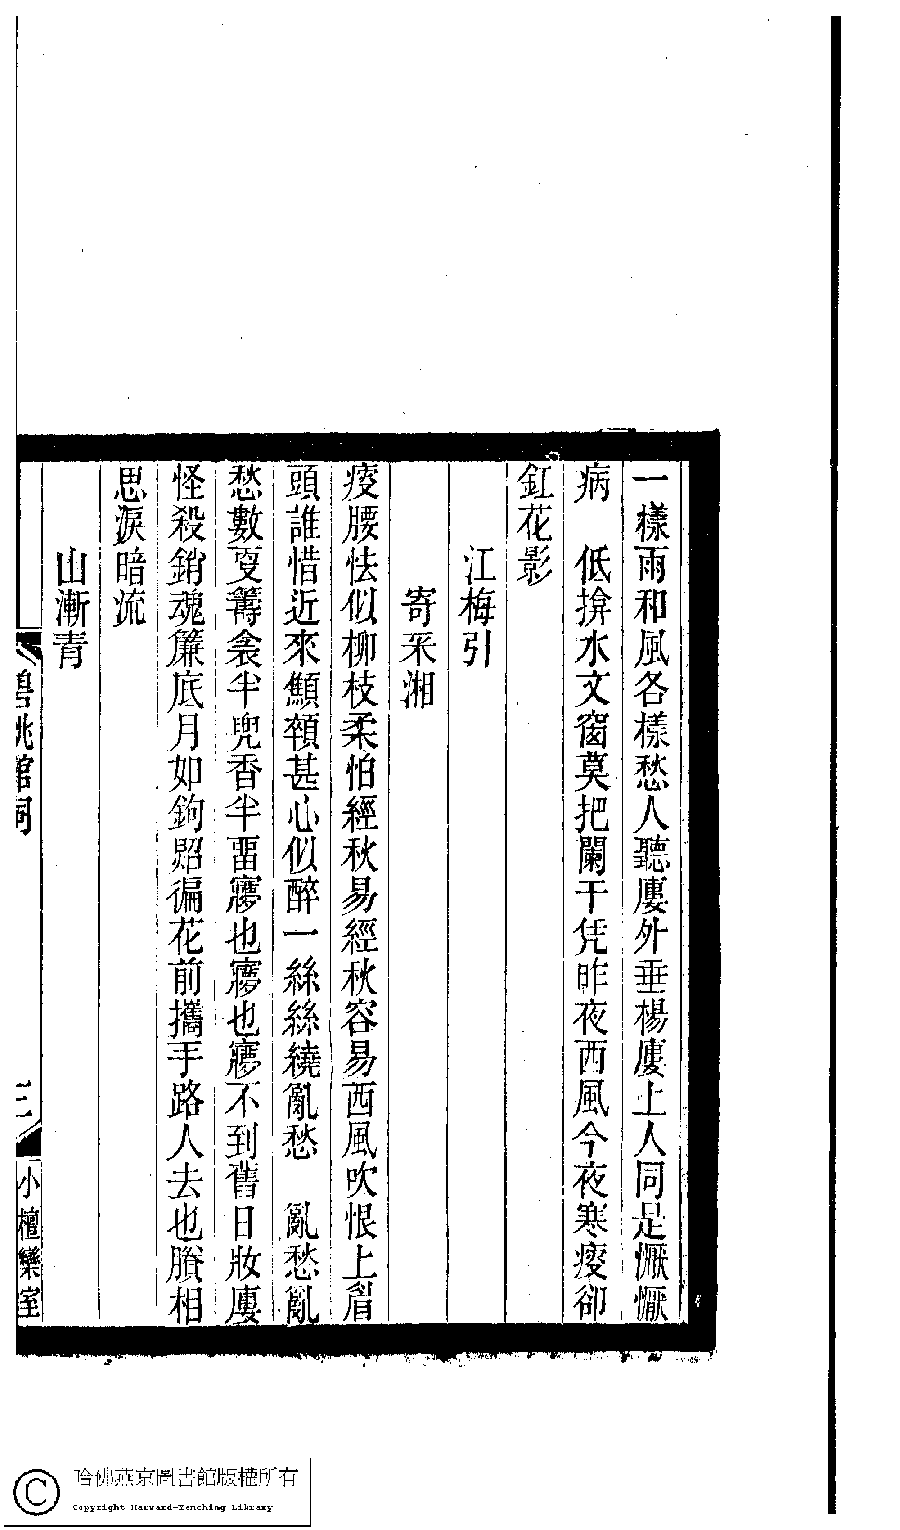 一樣雨和風各樣愁人聽廔外垂楊廔上人同是懨懨
病　低揜水文窗莫把闌干凭昨夜西風今夜寒痠卻
釭花影
江梅引
寄采湘
痠腰怯似柳枝柔怕經秋易經秋容易西風吹恨上眉
頭誰惜近來顦顇甚心似醉一絲絲繞亂愁　亂愁亂
愁數叓篝衾半兜香半畱㝱也㝱也㝱不到舊日妝廔
怪殺銷魂簾底月如鉤照徧花前攜手路人去也賸相
思淚暗流
山漸青
碧桃館詞
三
小檀欒室
哈佛燕京圖書館版權所有
Copyright Harvard-Yenching Library